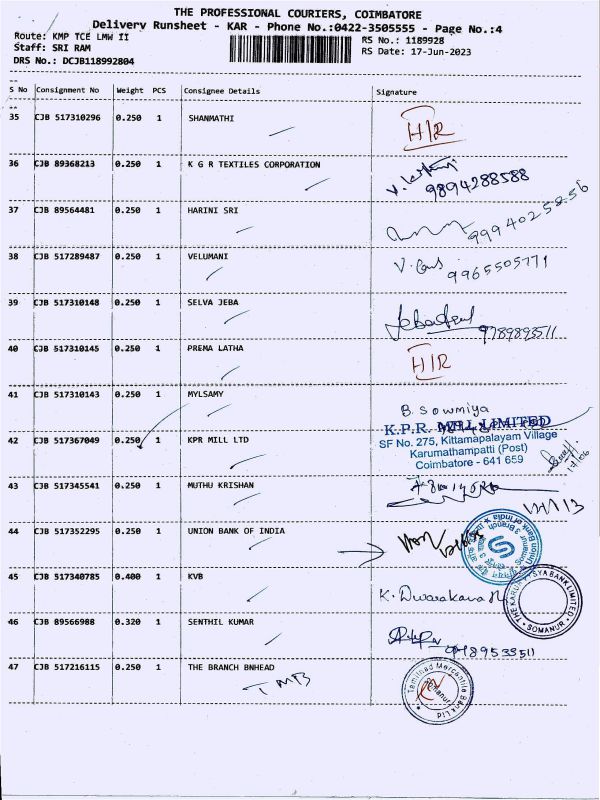 THE PROFESSIONAL COURIERS, COIMBATORE
Delivery Runsheet - KAR - Phone No.:0422-3505555 - Page No.:4
Route: KMP TCE LMW II
RS No.: 1189928
Staff: SRI RAM
RS Date: 17-Jun-2023
DRS No.: DCJB118992804
S No Consignment No Weight PCS Consignee Details Signature
35 CJB 517310296 0.250 1 SHANMATHI H/R
36 CJB 89368213 0.250 1 K G R TEXTILES CORPORATION 9894288588
37 CJB 89564481 0.250 1 HARINI SRI 9994025856
38 CJB 517289487 0.250 1 VELUMANI 9965505771
39 CJB 517310148 0.250 1 SELVA JEBA 9789893511
40 CJB 517310145 0.250 1 PREMA LATHA H/R
41 CJB 517310143 0.250 1 MYLSAMY B. Sowmiya
42 CJB 517367049 0.250 1 KPR MILL LTD
K.P.R. MILL LIMITED
SF No. 275, Kittamapalayam Village
Karumathampatti (Post)
Coimbatore - 641 659
43 CJB 517345541 0.250 1 MUTHU KRISHAN
44 CJB 517352295 0.250 1 UNION BANK OF INDIA
Union Bank of India
45 CJB 517340785 0.400 1 KVB K. Dwarakava
THE KARUR VYSYA BANK LIMITED
SOMANUR
46 CJB 89566988 0.320 1 SENTHIL KUMAR
47 CJB 517216115 0.250 1 THE BRANCH BNHEAD
TMB
Tamilnad Mercantile Bank Ltd
Somanur